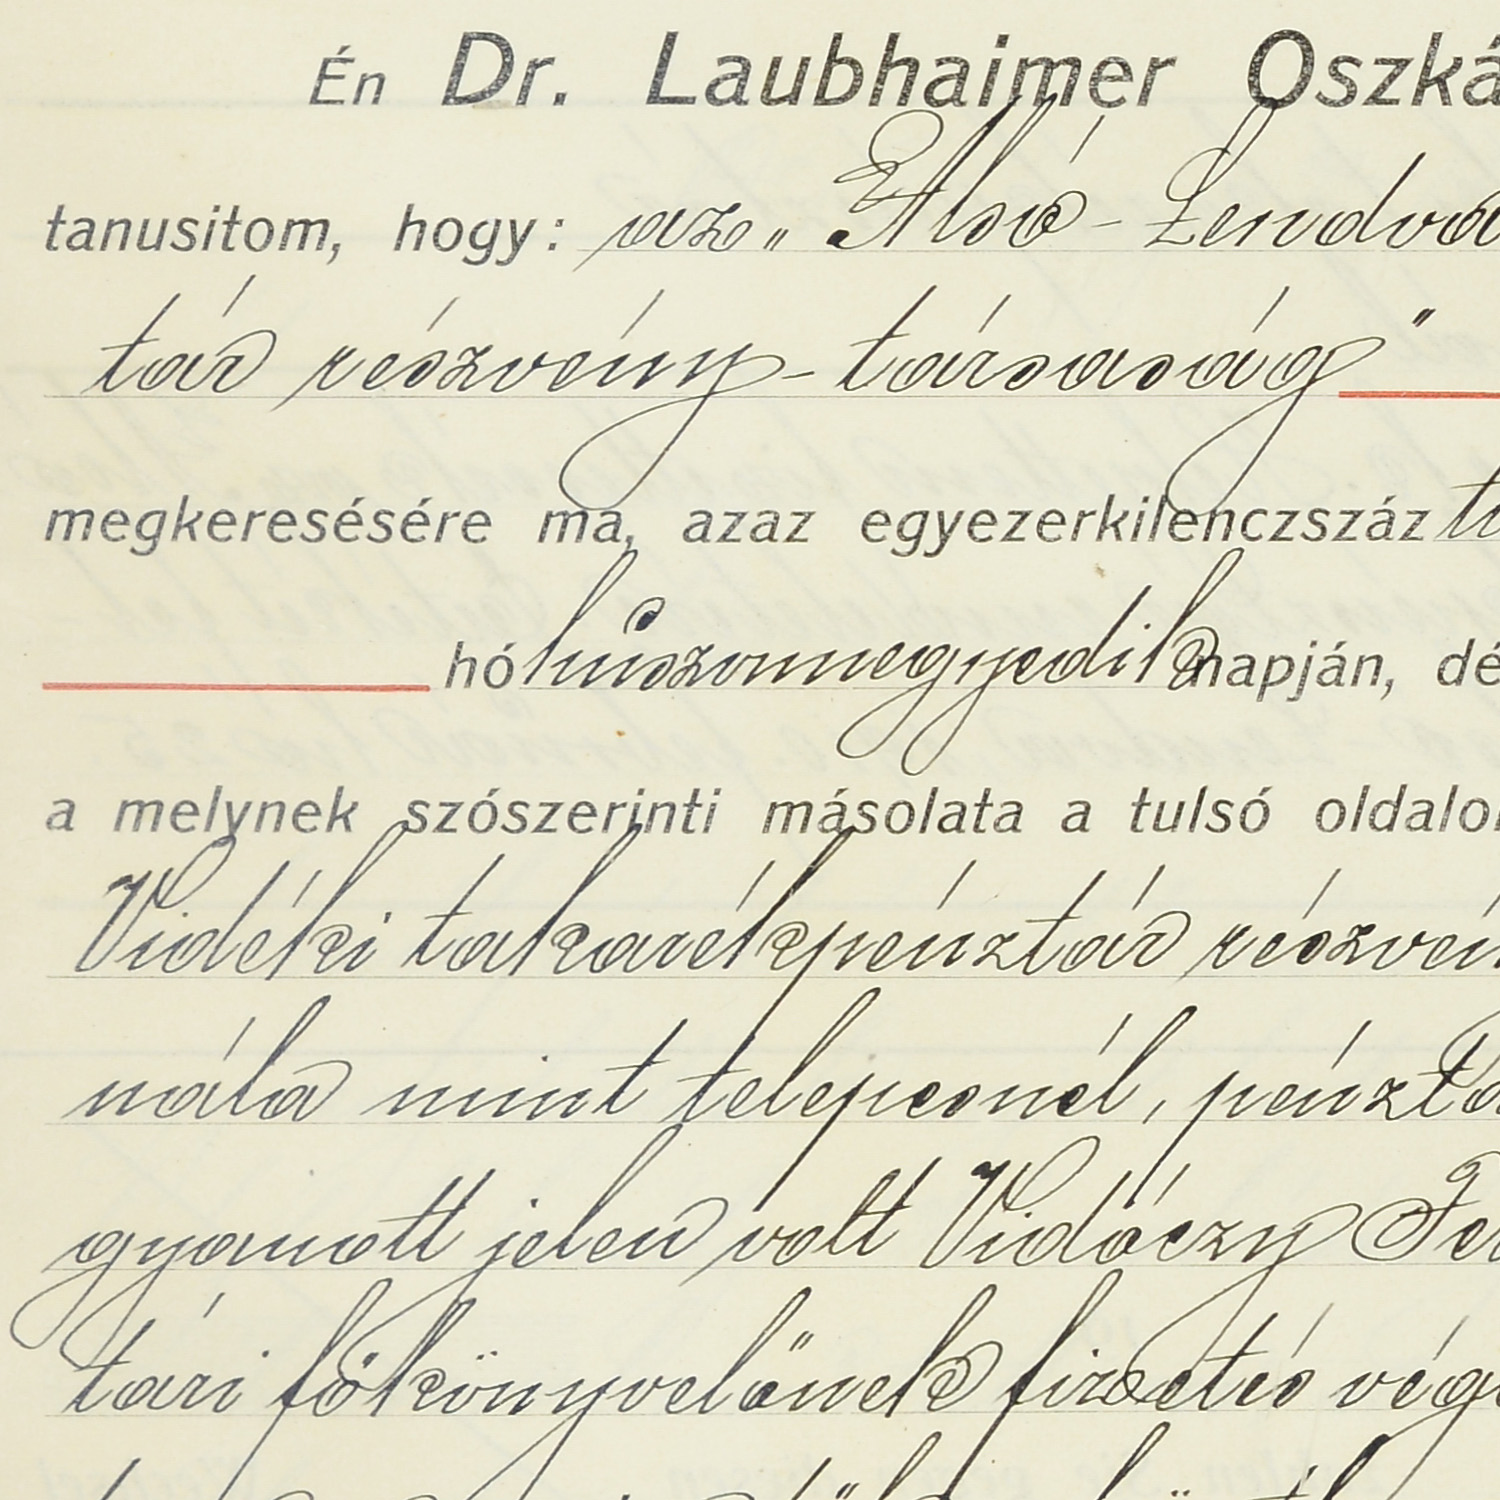 Én Dr. Laubhaimer Oszká
tanusitom, hogy: az „Alsó-Lendva
tár részvény-társaság"
megkeresésére ma, azaz egyezerkilenczszáz ti
hó huszonnegyedik napján, dé
a melynek szószerinti másolata a tulsó oldalon
Vidéki takarékpénztár részvén
nála mint telepesnél, pénztá
gyanott jelen volt Vidóczy Fer
tári főkönyvelőnek fizetés vége